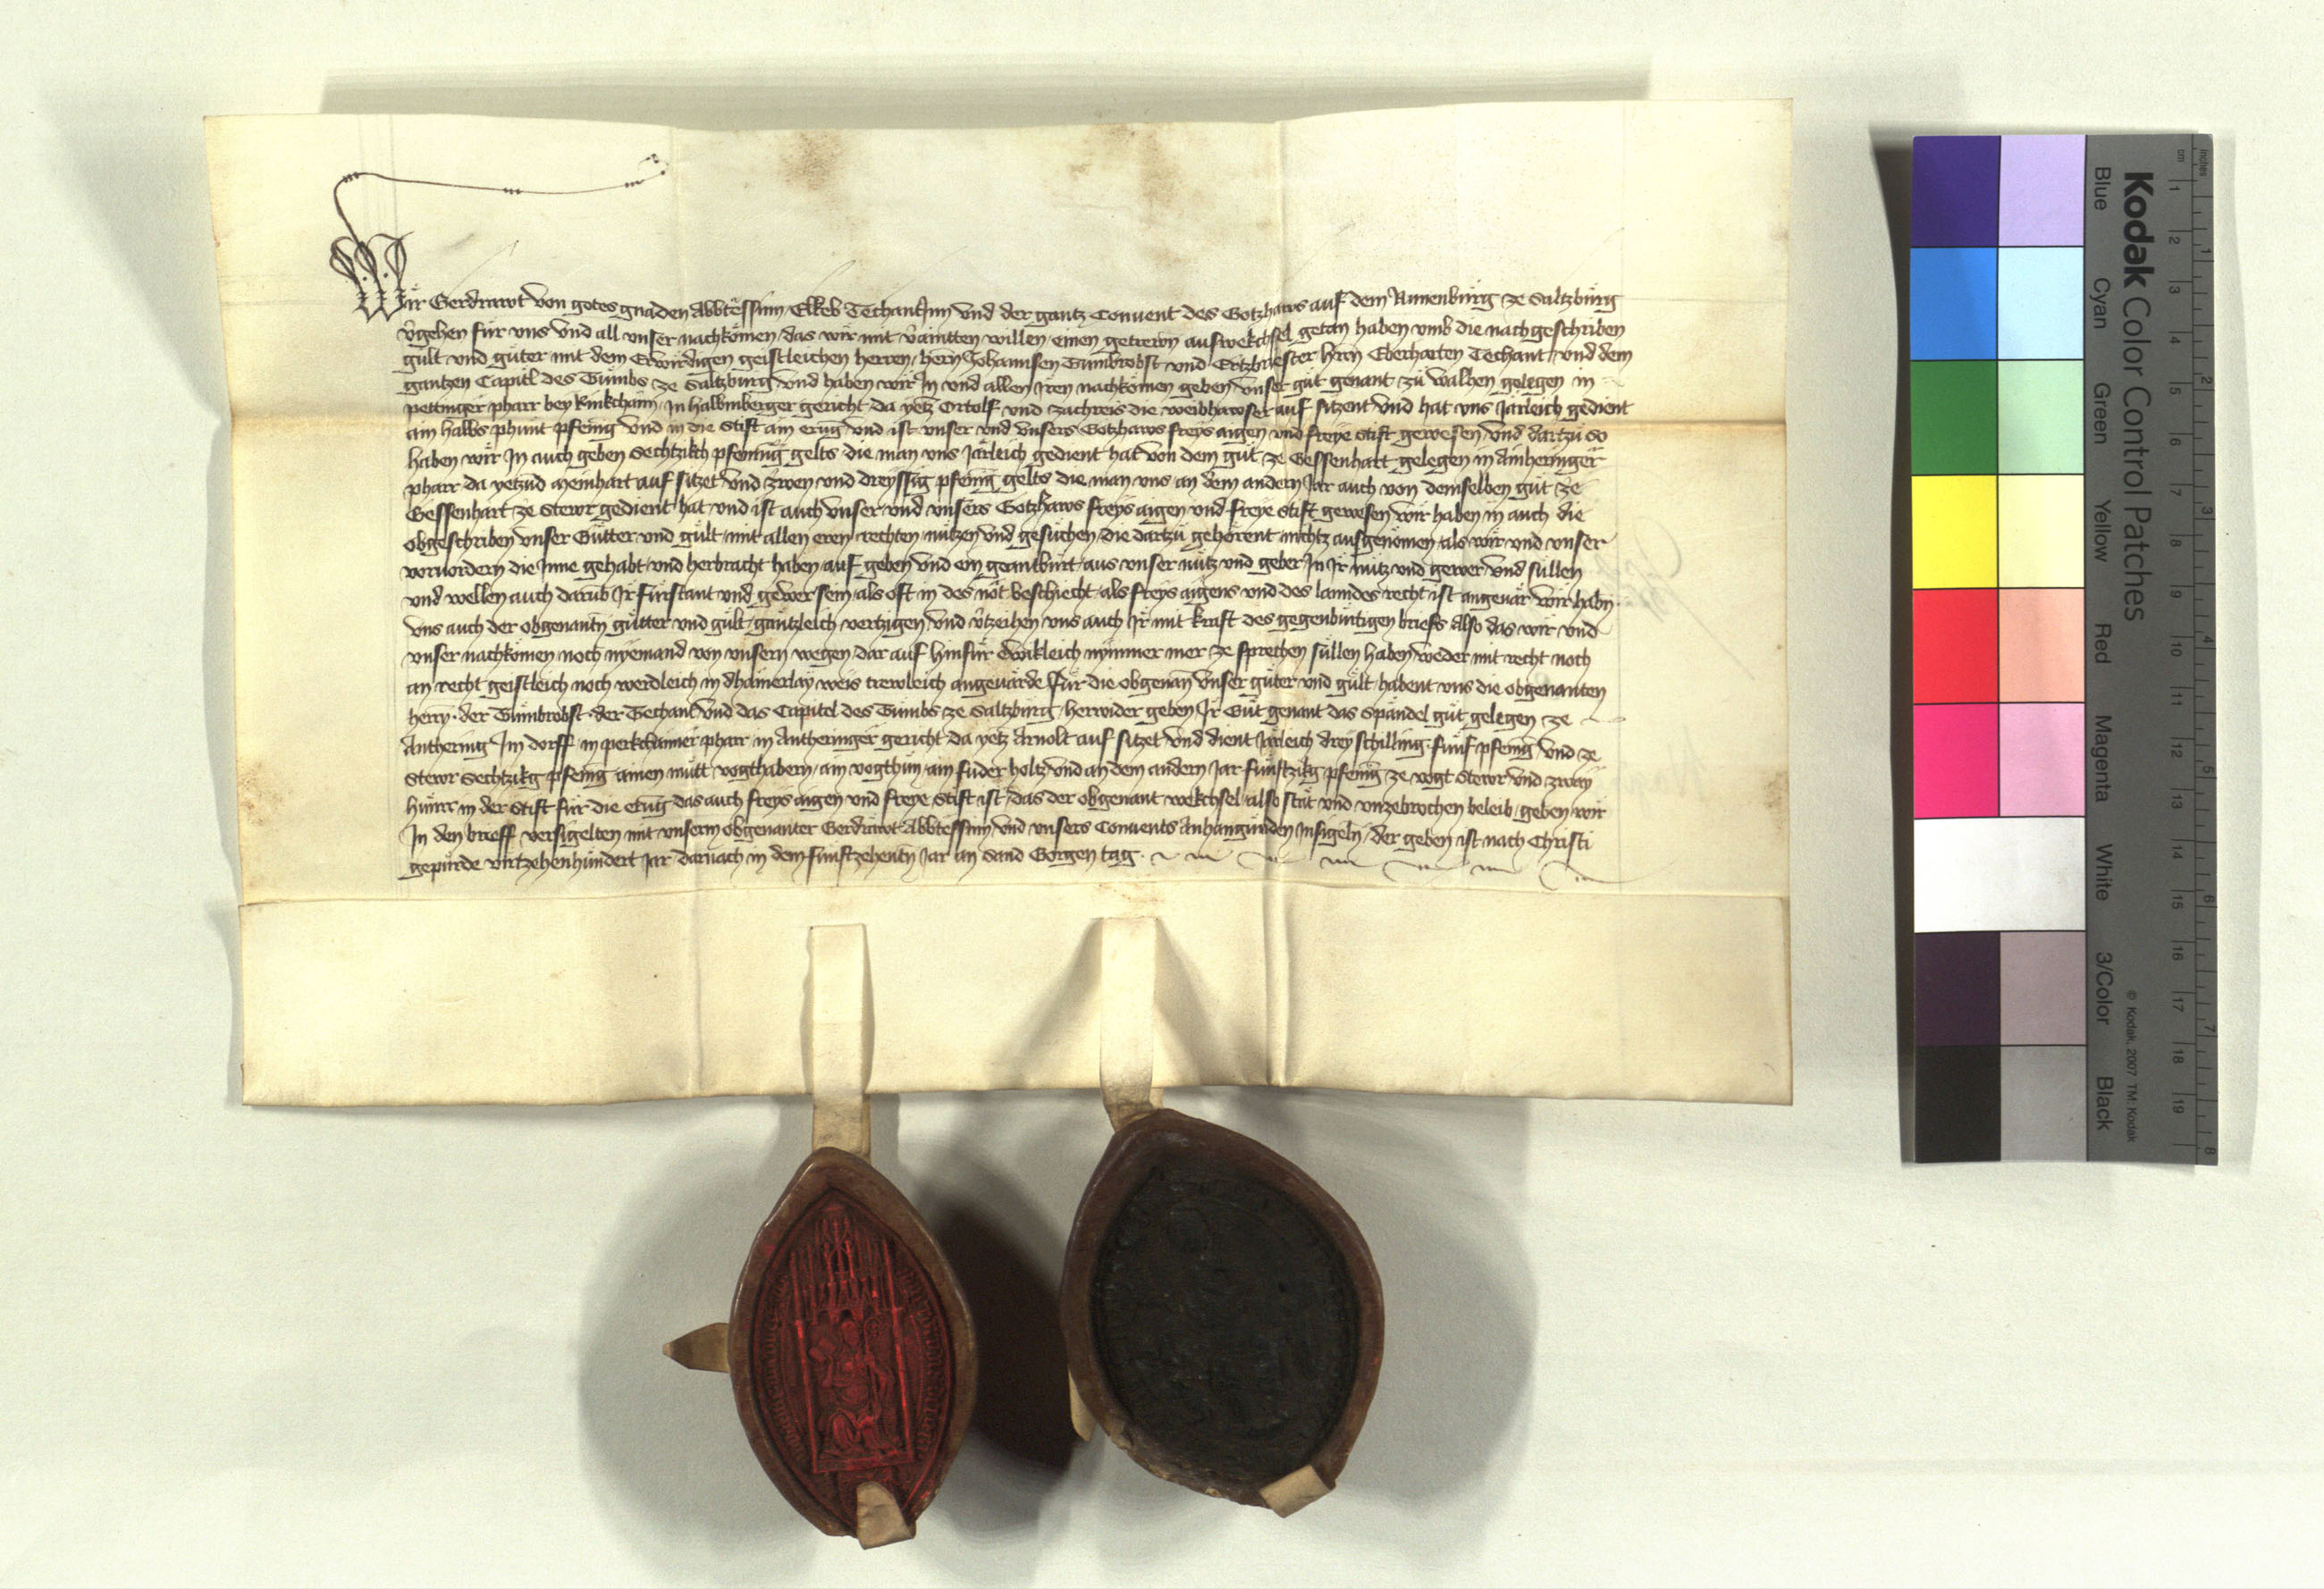 Wir Gerdrawt von gotes gnaden Abbtessinn Elzeb Techantjnn vnd der gantz Conuent des Gotzhaws auf dem Nunnenburg ze Saltzburg
v̈gehen für vns vnd all vnser nachkomen das wir mit v̈ainten willen einen getrewn aufwekchsel getan haben vmb die nachgeschriben
gült vnd güter mit dem Erwirdigen geistleichen herren hern Johannsen Tümbrobst vnd Ertzbriester hern Eberharten Techant vnd dem
gantzen Capitl des Tümbs ze Saltzburg vnd haben wir Jn vnd allen jren nachkömen geben vnser gut genant zu walhen gelegen in
pettinger pharr bey in halbmberger gericht da yetz Ortolf vnd zachreis die weibhawser auf sitzent vnd hat vns Järleich gedient
ain halbs phunt pfenig vnd in die stift ain erüg vnd ist vnser vnd vnsers Gotzhaws freys aigen vnd freye stift gewesen vnd dartzu so
haben wir Jn auch geben Sechtzikch pfening gelts die man vns Järleich gedient hat von dem güt ze Gessenhart gelegen in Ainheringer
pharr da yetzud Meinhart auf sitzet vnd zwen vnd dreyssig pfenig gelts die man vns an dem andern Jar auch von demselben gut ze
Gessenhart ze Stewr gedient hat vnd ist auch vnser vnd vnsers Gotzhaws freys aigen vnd freye stift gewesen wir haben in auch die
obgeschriben vnser Gütter vnd gült mit allen eren rechten nützen vnd gesüchen die dartzü gehörent nichtz ausgenomen als wir vnd vnser
voruordern die Jnne gehabt vnd herbracht haben auf geben vnd ein geantburt aus vnser nütz vnd gewer Jn Jr nütz vnd gewer vnd süllen
vnd wellen auch darub Jr fürstant vnd gewer sein als oft in des not beschiecht als freys aigens vnd des lanndes recht ist angeuar wir habn
vns auch der obgenantn gütter vnd gült gantzleich vertzigen vnd v̈tzeihen vns auch Jr mit kraft des gegenbürtigen briefs Also das wir vnd
vnser nachkomen noch nyemand von vnsern wegen dar auf hinfür Ewikleich nymmer mer ze sprechen süllen haben weder mit recht noch
an recht geistleich noch werdleich in dhainerlay weis trewleich angeuärde Für die obgenan vnser güter vnd gült habent vns die obgenanten
herrn der Tümbrobst der Techant vnd das Capitel des Tümbs ze Saltzburg herwider geben Jr Güt genant das Spändel gut gelegen ze
Anthering Jm dorff in perkchaimer pharr in Antheringer gericht da yetz Arnolt auf sitzet vnd dient Järleich drey schilling fünf pfenig vnd ze
Stewr Sechtzikg pfenig ainen mütt vogthabern ain vogthün ain fuder holtz vnd an dem andern Jar fünftzikg pfenig ze vogt Stewr vnd zway
hünrr in der Stift für die erüg das auch freys aigen vnd freye Stift ist das der obgenant wekchsel also stät vnd vnzebrochen beleib geben wir
Jn den brieff versigelten mit vnserm obgenanter Gerdrawt Abbtessinn vnd vnsers Conuents Anhangunden Jnsigeln der geben ist nach Christi
gepürde virtzehenhundert Jar darnach in dem fünftzehentn Jar an sand Görgen tag
Kodak Color Control Patches
Blue Cyan Green Yellow Red Magenta White 3/Color Black
© Kodak, 2007 TM: Kodak
cm 1 2 3 4 5 6 7 8 9 10 11 12 13 14 15 16 17 18 19
inches 1 2 3 4 5 6 7 8